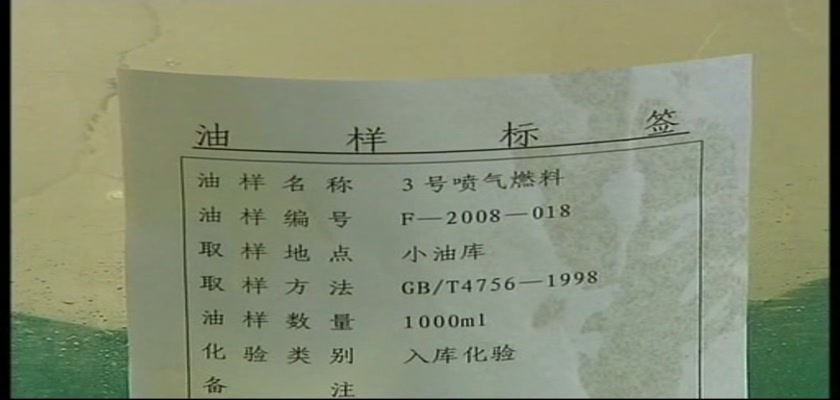 油样标签
油样名称 3号喷气燃料
油样编号 F—2008—018
取样地点 小油库
取样方法 GB/T4756—1998
油样数量 1000ml
化验类别 入库化验
备注